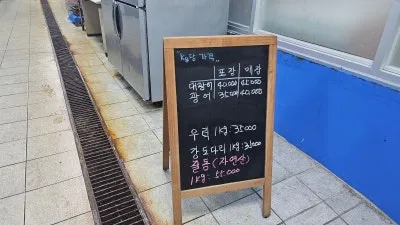 kg당 가격
포장 매장
대광어 40000 45000
광어 35000 40,000
우럭 1kg: 35000
강도다리 1kg: 35000
돌돔 (자연산)
1kg: 55.000